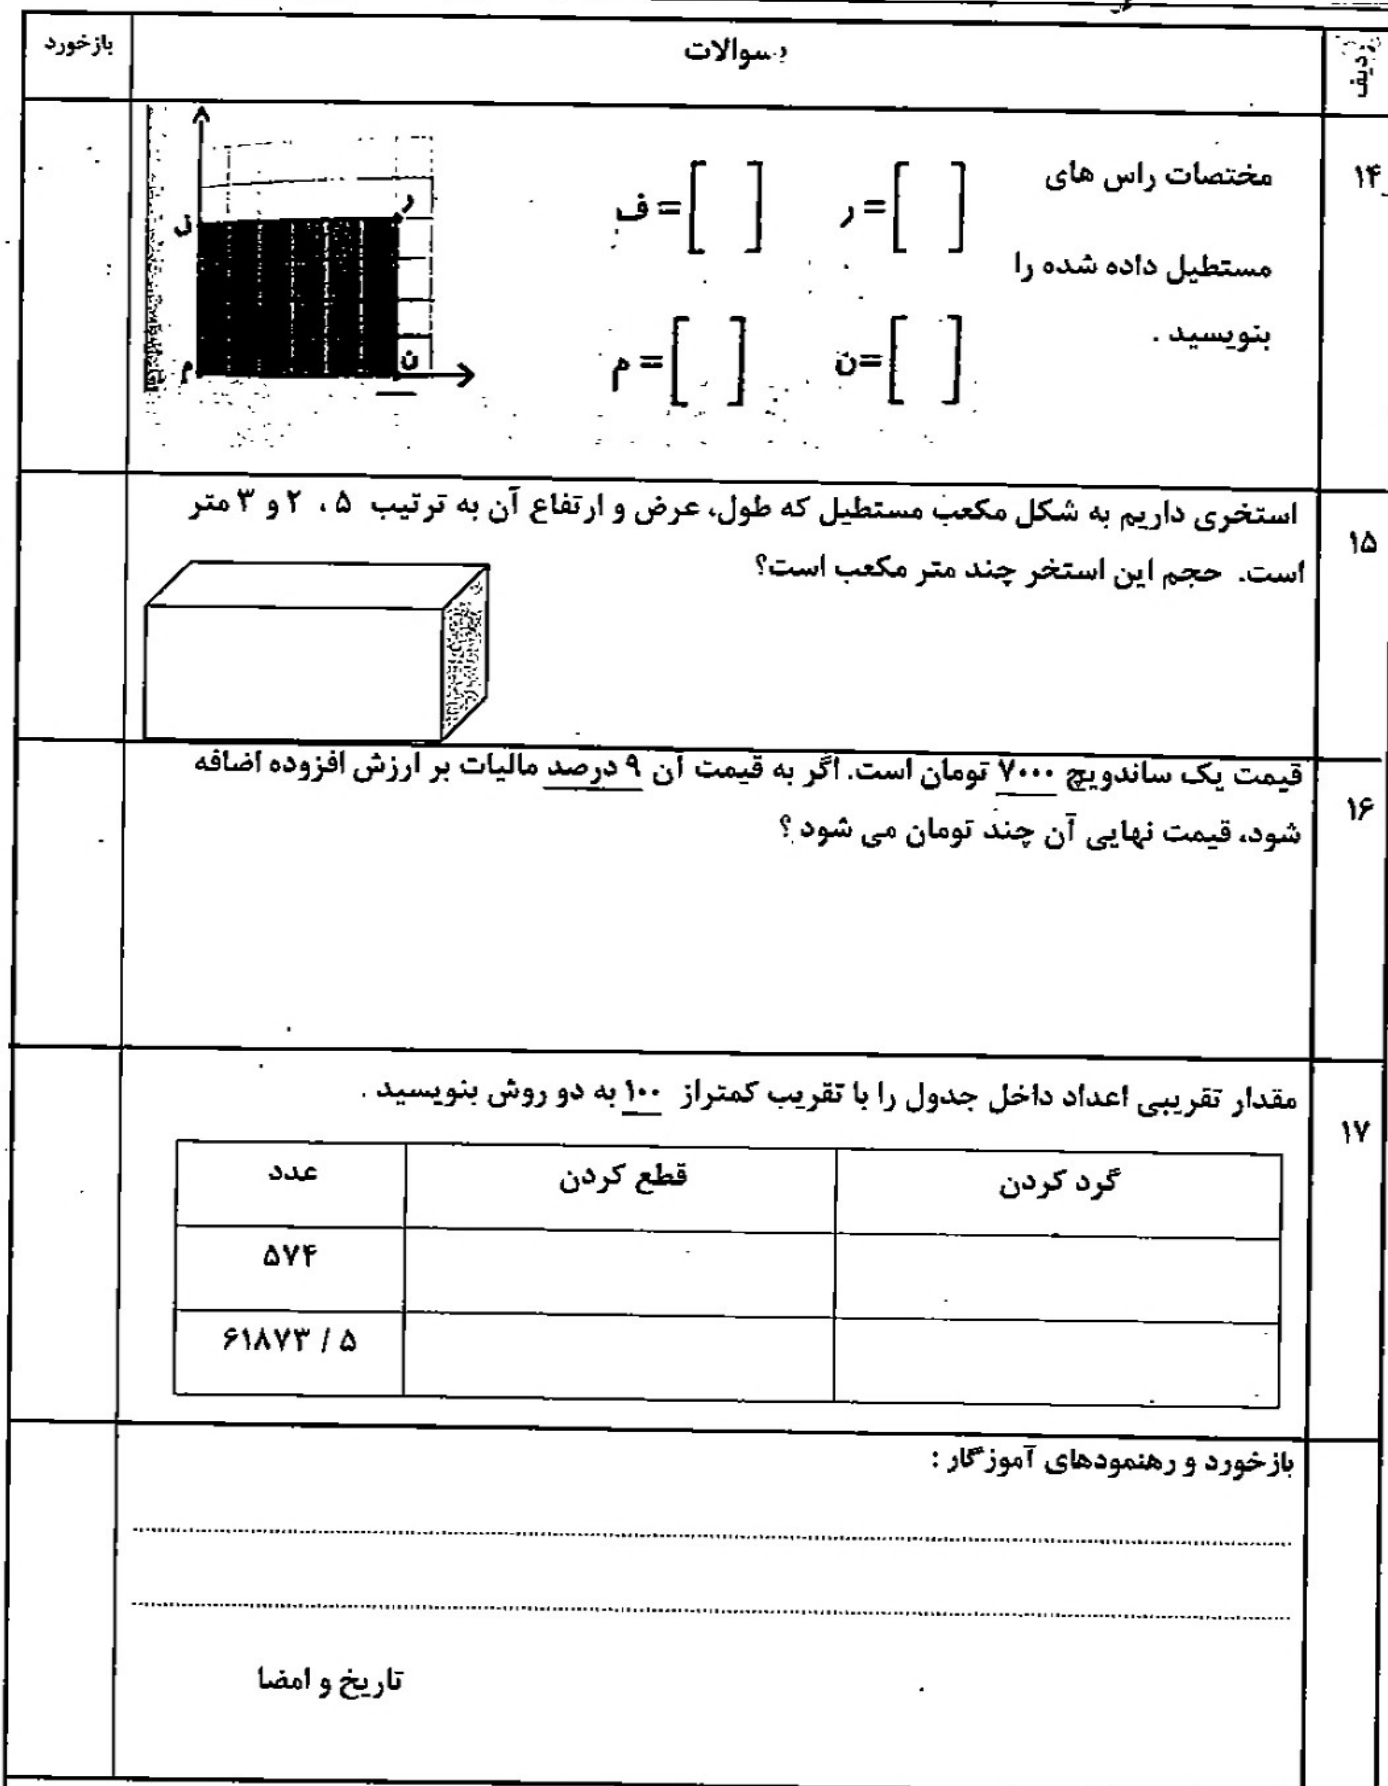 ردیف سوالات بازخورد
۱۴ مختصات راس های
مستطیل داده شده را
بنویسید .
ر = [ ] ف = [ ]
ن = [ ] م = [ ]
ف ر
م ن
۱۵ استخری داریم به شکل مکعب مستطیل که طول، عرض و ارتفاع آن به ترتیب ۵ ، ۲ و ۳ متر
است. حجم این استخر چند متر مکعب است؟
۱۶ قیمت یک ساندویچ ۷۰۰۰ تومان است. اگر به قیمت آن ۹ درصد مالیات بر ارزش افزوده اضافه
شود، قیمت نهایی آن چند تومان می شود ؟
۱۷ مقدار تقریبی اعداد داخل جدول را با تقریب کمتراز ۱۰۰ به دو روش بنویسید .
گرد کردن قطع کردن عدد
۵۷۴
۶۱۸۷۳ / ۵
بازخورد و رهنمودهای آموزگار :
تاریخ و امضا